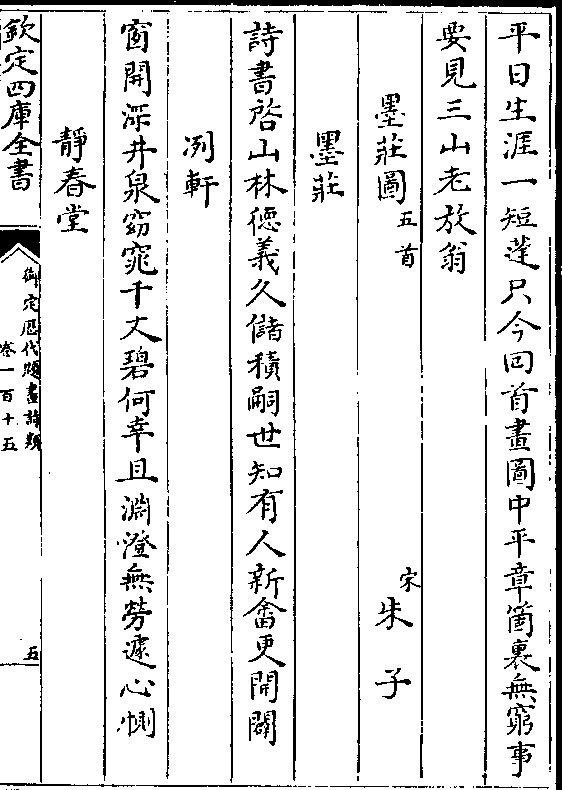 平日生涯一短蓬只今回首畫圖中平章箇裏無窮事
要見三山老放翁
墨莊圖五首 宋朱子
墨莊
詩書啓山林德義久儲積嗣世知有人新畬更開闢
冽軒
窗開深井泉窈窕千丈碧何幸且淵澄無勞遽心惻
靜春堂
欽定四庫全書
御定歷代題畫詩類
卷一百十五
五